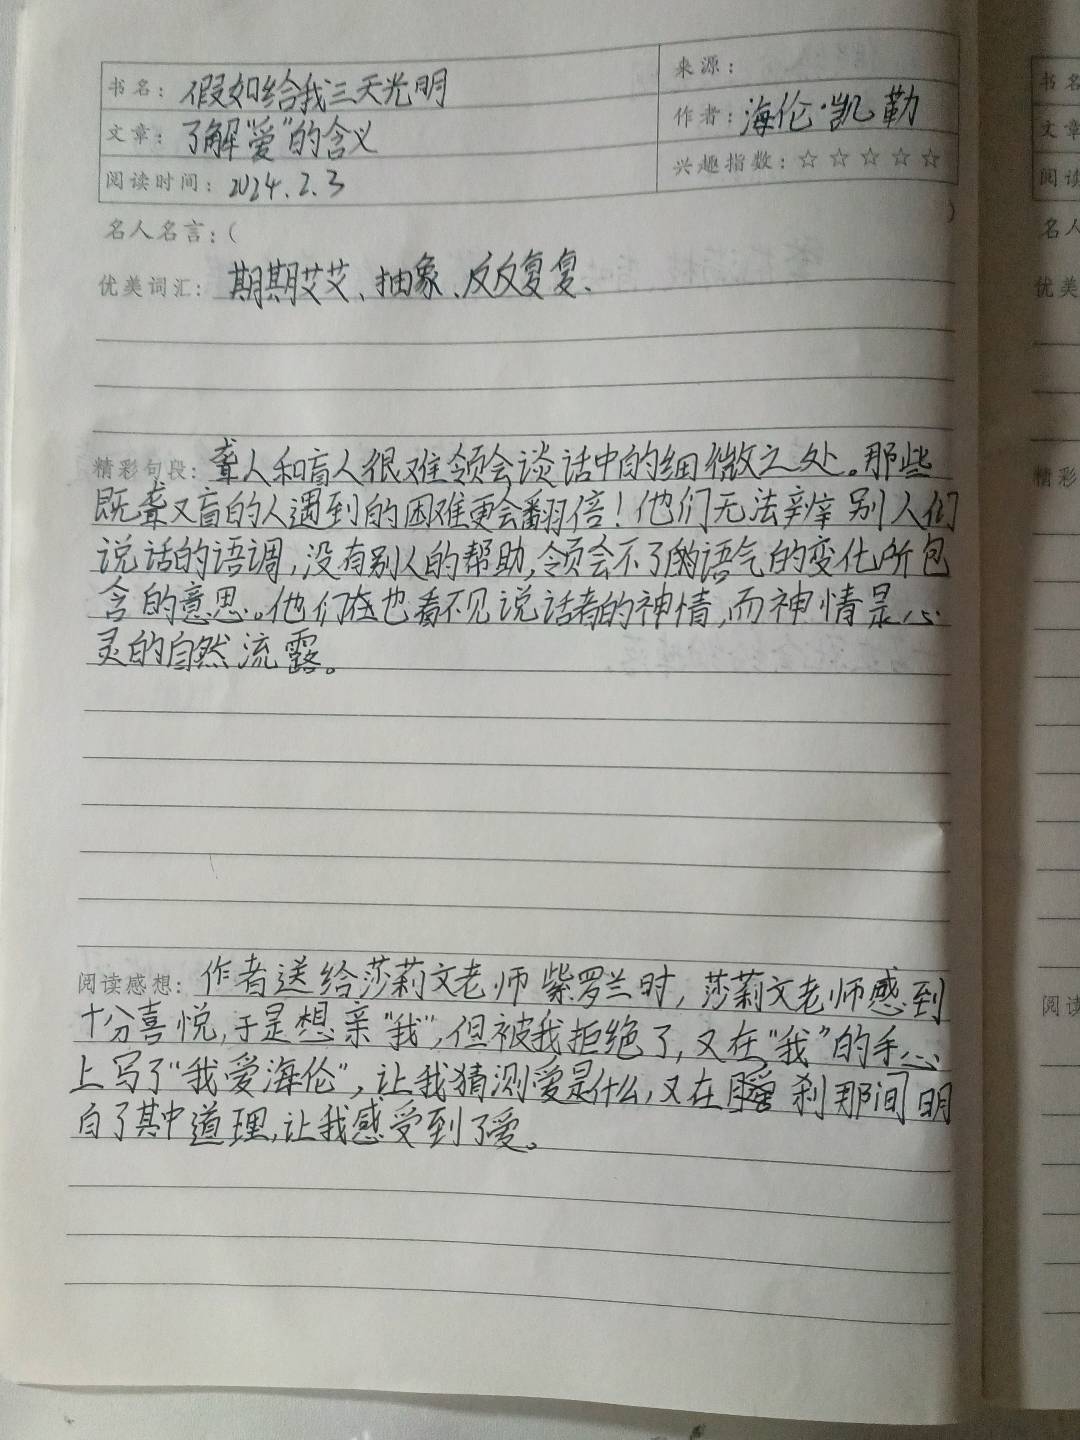 书名：假如给我三天光明
来源：
文章：了解“爱”的含义
作者：海伦·凯勒
阅读时间：2024.2.3
兴趣指数：☆☆☆☆☆
名人名言：( )
优美词汇：期期艾艾、抽象、反反复复、
精彩句段：聋人和盲人很难领会谈话中的细微之处。那些
既聋又盲的人遇到的困难更会翻倍！他们无法辨别人们
说话的语调，没有别人的帮助，领会不了的语气的变化所包
含的意思。他们在也看不见说话者的神情，而神情是心
灵的自然流露。
阅读感想：作者送给莎莉文老师紫罗兰时，莎莉文老师感到
十分喜悦，于是想亲“我”，但被我拒绝了，又在“我”的手心
上写了“我爱海伦”，让我猜测爱是什么，又在 刹那间明
白了其中道理，让我感受到了爱。
书名
文章
阅读
名人
优美
精彩
阅读